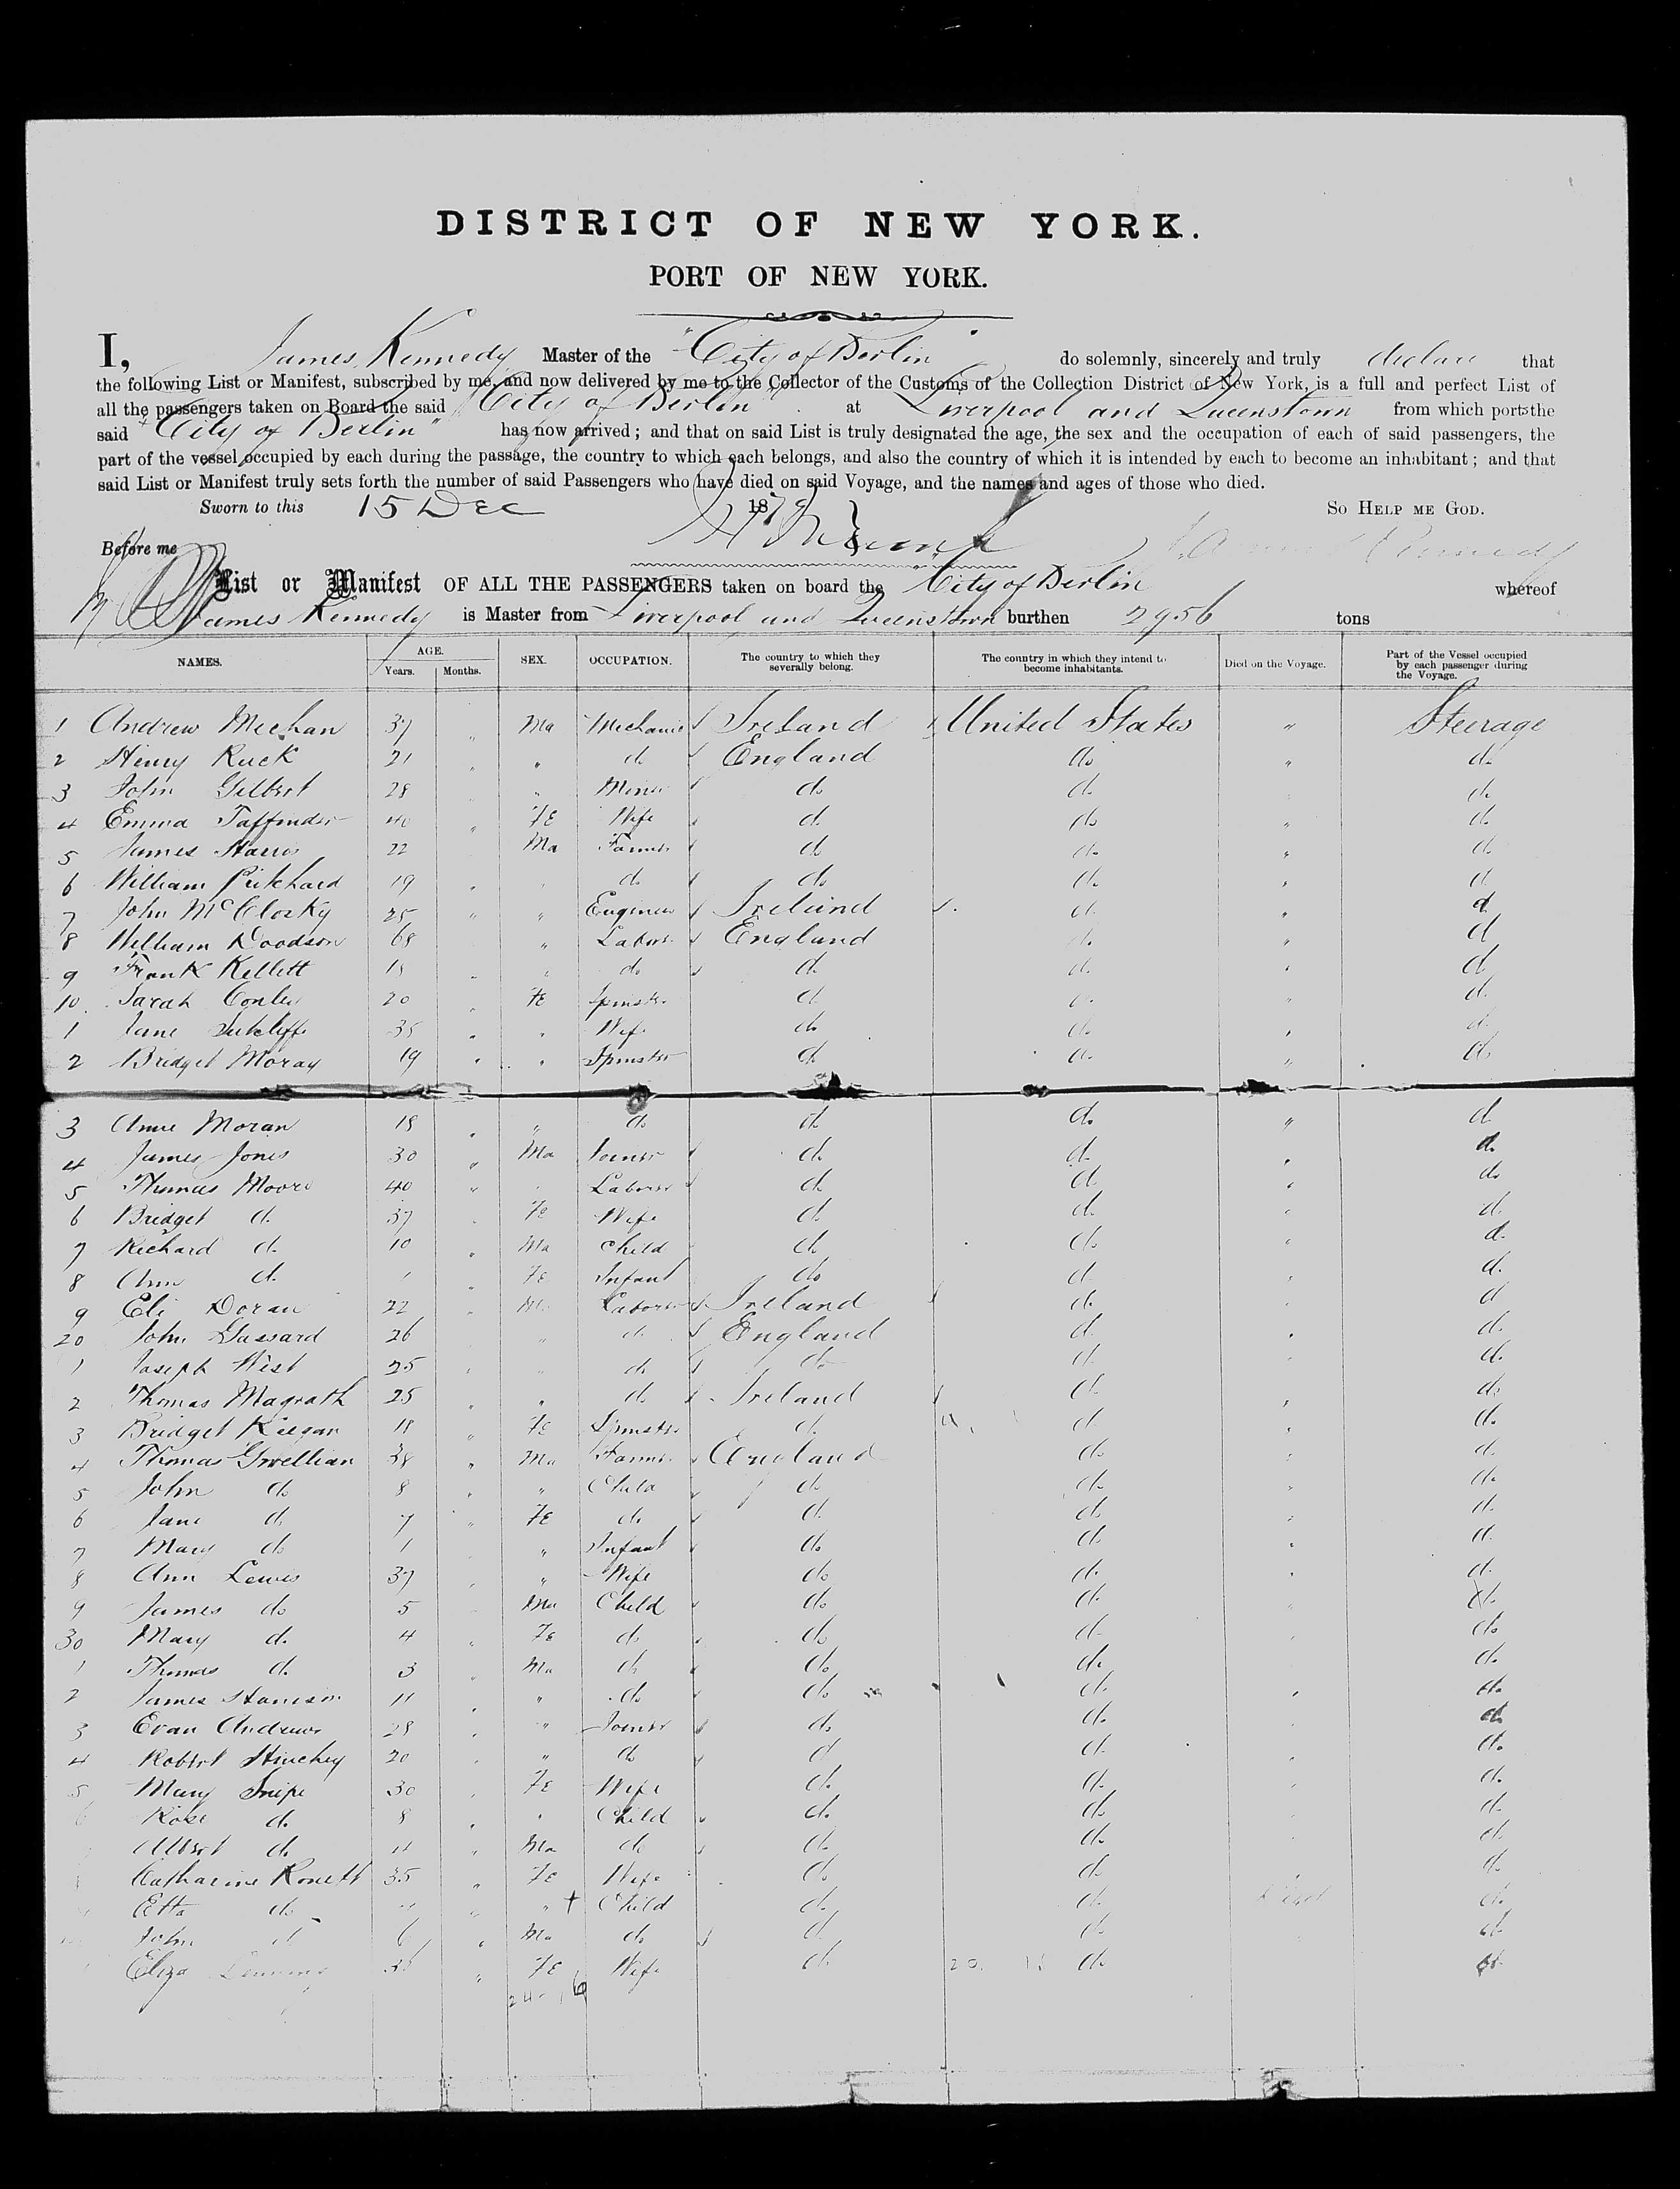 DISTRICT OF NEW YORK.
PORT OF NEW YORK.
I, James Kennedy Master of the "City of Berlin" do solemnly, sincerely and truly declare that
the following List or Manifest, subscribed by me, and now delivered by me to the Collector of the Customs of the Collection District of New York, is a full and perfect List of
all the passengers taken on Board the said "City of Berlin" at Liverpool and Queenstown from which ports the
said "City of Berlin" has now arrived; and that on said List is truly designated the age, the sex and the occupation of each of said passengers, the
part of the vessel occupied by each during the passage, the country to which each belongs, and also the country of which it is intended by each to become an inhabitant; and that
said List or Manifest truly sets forth the number of said Passengers who have died on said Voyage, and the names and ages of those who died.
Sworn to this 15 Dec 1879 So Help me God.
Before me James Kennedy
List or Manifest OF ALL THE PASSENGERS taken on board the City of Berlin whereof
James Kennedy is Master from Liverpool and Queenstown burthen 2956 tons
NAMES. AGE. Years. Months. SEX. OCCUPATION. The country to which they severally belong. The country in which they intend to become inhabitants. Died on the Voyage. Part of the Vessel occupied by each passenger during the Voyage.
1 Andrew Meehan 37 " Ma Mechanic Ireland United States " Steerage
2 Henry Ruck 21 " " do England do " do
3 John Gilbert 28 " " Miner do do do
4 Emma Taffinder 40 " Fe Wife do do " do
5 James Harris 22 Ma Farmer do do " do
6 William Pritchard 19 " " do do do " do
7 John McClosky 25 " " Engineer Ireland do " do
8 William Doodson 68 " Labor England do " do
9 Frank Kellett 18 " " do do do " do
10 Sarah Conley 20 " Fe Spinstr do do " do
1 Jane Sutcliffe 35 " " Wife do do " do
2 Bridget Moray 19 " " Spinster do do " do
3 Anne Moran 18 " " do do do " do
4 James Jones 30 " Ma Joiner do do " do
5 Thomas Moore 40 " " Laborer do do " do
6 Bridget do 37 " Fe Wife do do " do
7 Richard do 10 " Ma Child do do " do
8 Ann do 1 " Fe Infant do do " do
9 Eli Doran 22 " Ma Laborer Ireland do do
20 John Gassard 26 " do England do " do
1 Joseph West 25 " " do do do " do
2 Thomas Magrath 25 " " do Ireland do " do
3 Bridget Keegan 18 " Fe Spinstr do do " do
4 Thomas Gwellian 38 " Ma Farmer England do " do
5 John do 8 " " Child do do " do
6 Jane do 7 " Fe do do do " do
7 Mary do 1 " " Infant do do " do
8 Ann Lewis 37 " " Wife do do " do
9 James do 5 Ma Child do do " do
30 Mary do 4 " Fe do do do " do
1 Thomas do 3 " Ma do do do do
2 James 11 " " do do do " do
3 Evan Andrews 28 " " Joiner do do " do
4 Robert Hinchey 20 " " do do do " do
5 Mary Snipe 30 " Fe Wife do do " do
6 Rose do 8 " " Child do do do
Albert do 11 " Ma do do do do
Catharine 35 " Fe Wife do do " do
Etta do " " + Child do do Died do
John do 6 " Ma do do do do
Eliza 36 " Fe Wife do 20 do do